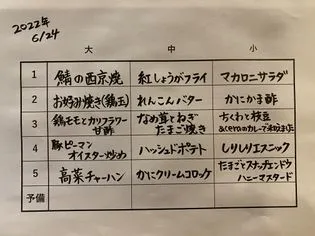 2022年
6/24
大 中 小
1 鯖の西京焼 紅しょうがフライ マカロニサラダ
2 お好み焼き(鶏玉) れんこんバター かにかま酢
3 鶏モモとカリフラワー 甘酢 なめ茸とねぎ たまご焼き ちくわと枝豆
4 豚ピーマン オイスター炒め ハッシュドポテト しりしりエスニック
5 高菜チャーハン かにクリームコロッケ たまごとスナップエンドウ ハニーマスタード
予備